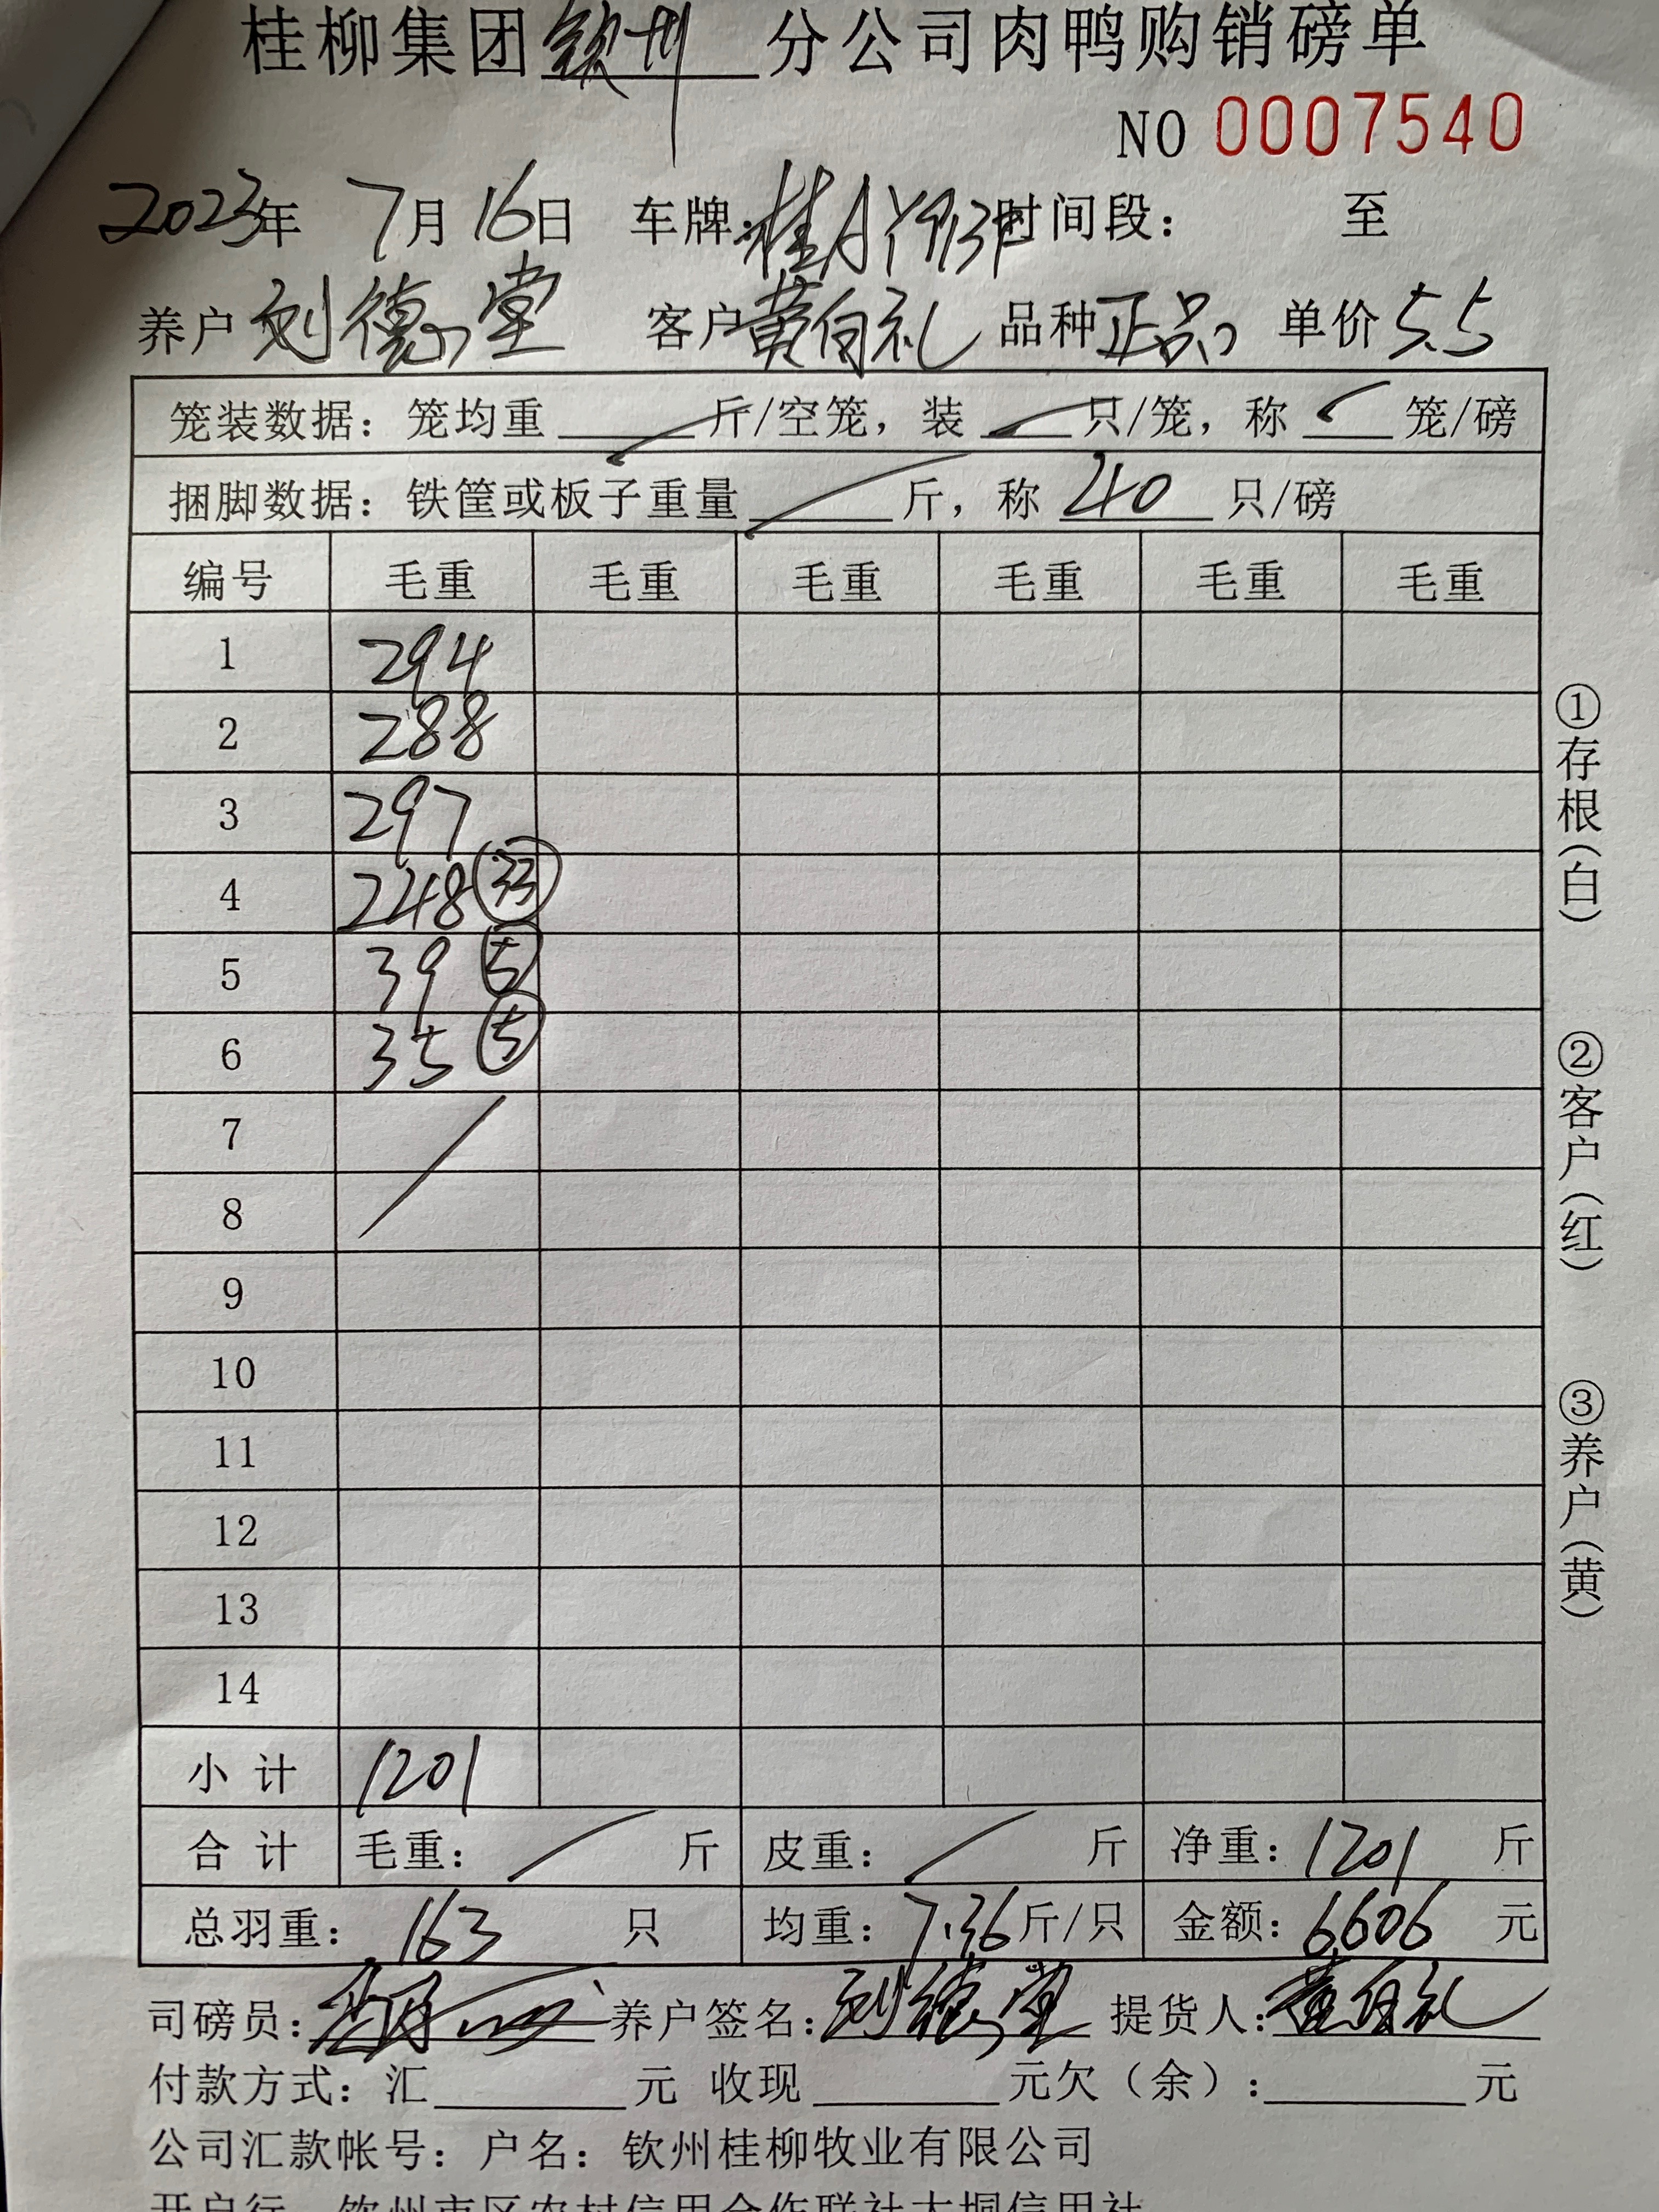 桂柳集团钦州分公司肉鸭购销磅单
NO 0007540
2023年 7月 16日 车牌:桂A 时间段: 至
养户 刘德堂 客户 黄自礼 品种 正品 单价 5.5
笼装数据: 笼均重 斤/空笼, 装 只/笼, 称 笼/磅
捆脚数据: 铁筐或板子重量 斤, 称 40 只/磅
编号 毛重 毛重 毛重 毛重 毛重 毛重
1 294
2 288
3 297
4 248 33
5 39 5
6 35 5
7
8
9
10
11
12
13
14
小计 1201
合计 毛重: 斤 皮重: 斤 净重: 1201 斤
总羽重: 163 只 均重: 7.36 斤/只 金额: 6606 元
司磅员: 养户签名: 刘德堂 提货人: 黄自礼
付款方式: 汇 元 收现 元欠(余): 元
公司汇款帐号: 户名: 钦州桂柳牧业有限公司
开户行 钦州市区农村信用合作联社大垌信用社
①存根(白)
②客户(红)
③养户(黄)